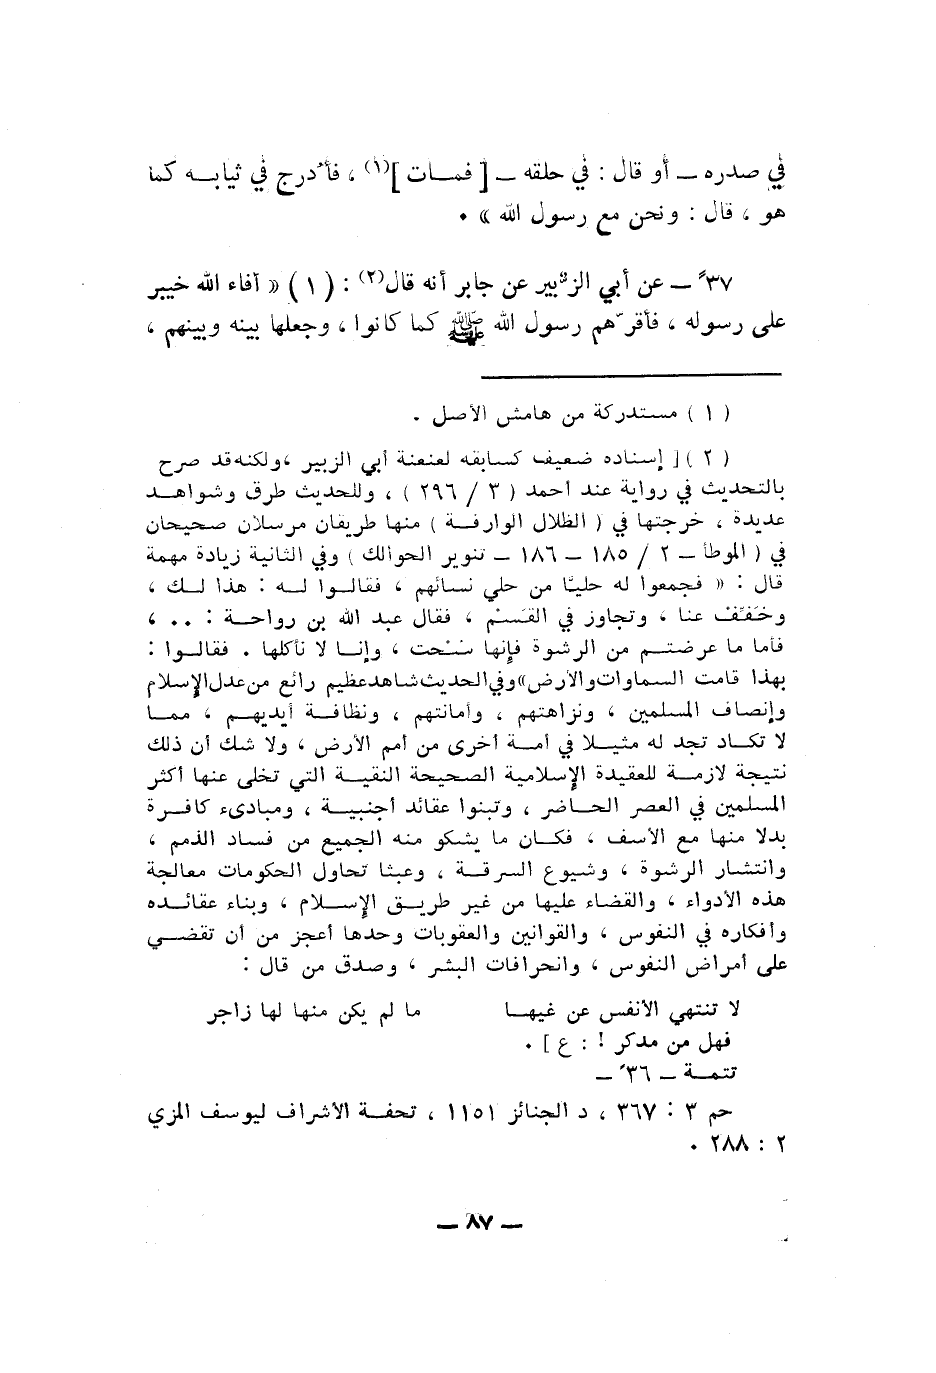 في صدره ـ أو قال : في حلقه ـ [ فمات ](١) ، فأُدرج في ثيابه كما
هو ، قال : ونحن مع رسول الله » .
٣٧ً ـ عن أبي الزّبير عن جابر أنه قال(٢) : ( ١ ) « آفاء الله خيبر
على رسوله ، فأقرّهم رسول الله ﷺ كما كانوا ، وجعلها بينه وبينهم ،
( ١ ) مستدركة من هامش الأصل .
( ٢ ) [ إسناده ضعيف كسابقه لعنعنة أبي الزبير ،ولكنه قد صرح
بالتحديث في رواية عند احمد ( ٣ / ٢٩٦ ) ، وللحديث طرق وشواهد
عديدة ، خرجتها في ( الظلال الوارفة ) منها طريقان مرسلان صحيحان
في ( الموطأ ـ ٢ / ١٨٥ ـ ١٨٦ ـ تنوير الحوالك ) وفي الثانية زيادة مهمة
قال : « فجمعوا له حليًا من حلي نسائهم ، فقالوا له : هذا لك ،
وخَفّف عنا ، وتجاوز في القَسْم ، فقال عبد الله بن رواحة : . . ،
فأما ما عرضتم من الرشوة فإنها سُحت ، وإنا لا نأكلها . فقالوا :
بهذا قامت السماوات والأرض» وفي الحديث شاهد عظيم رائع من عدل الإسلام
وإنصاف المسلمين ، ونزاهتهم ، وأمانتهم ، ونظافة أيديهم ، مما
لا تكاد تجد له مثيلا في أمة أخرى من أمم الأرض ، ولا شك أن ذلك
نتيجة لازمة للعقيدة الإسلامية الصحيحة النقية التي تخلى عنها أكثر
المسلمين في العصر الحاضر ، وتبنوا عقائد أجنبية ، ومبادىء كافرة
بدلا منها مع الأسف ، فكان ما يشكو منه الجميع من فساد الذمم ،
وانتشار الرشوة ، وشيوع السرقة ، وعبثا تحاول الحكومات معالجة
هذه الأدواء ، والقضاء عليها من غير طريق الإسلام ، وبناء عقائده
وأفكاره في النفوس ، والقوانين والعقوبات وحدها أعجز من أن تقضي
على أمراض النفوس ، وانحرافات البشر ، وصدق من قال :
لا تنتهي الأنفس عن غيها ما لم يكن منها لها زاجر
فهل من مدكر ! : ع ] .
تتمة ـ ٣٦ ـ
حم ٣ : ٣٦٧ ، د الجنائز ١١٥١ ، تحفة الأشراف ليوسف المزي
٢ : ٢٨٨ .
ـ ٨٧ ـ